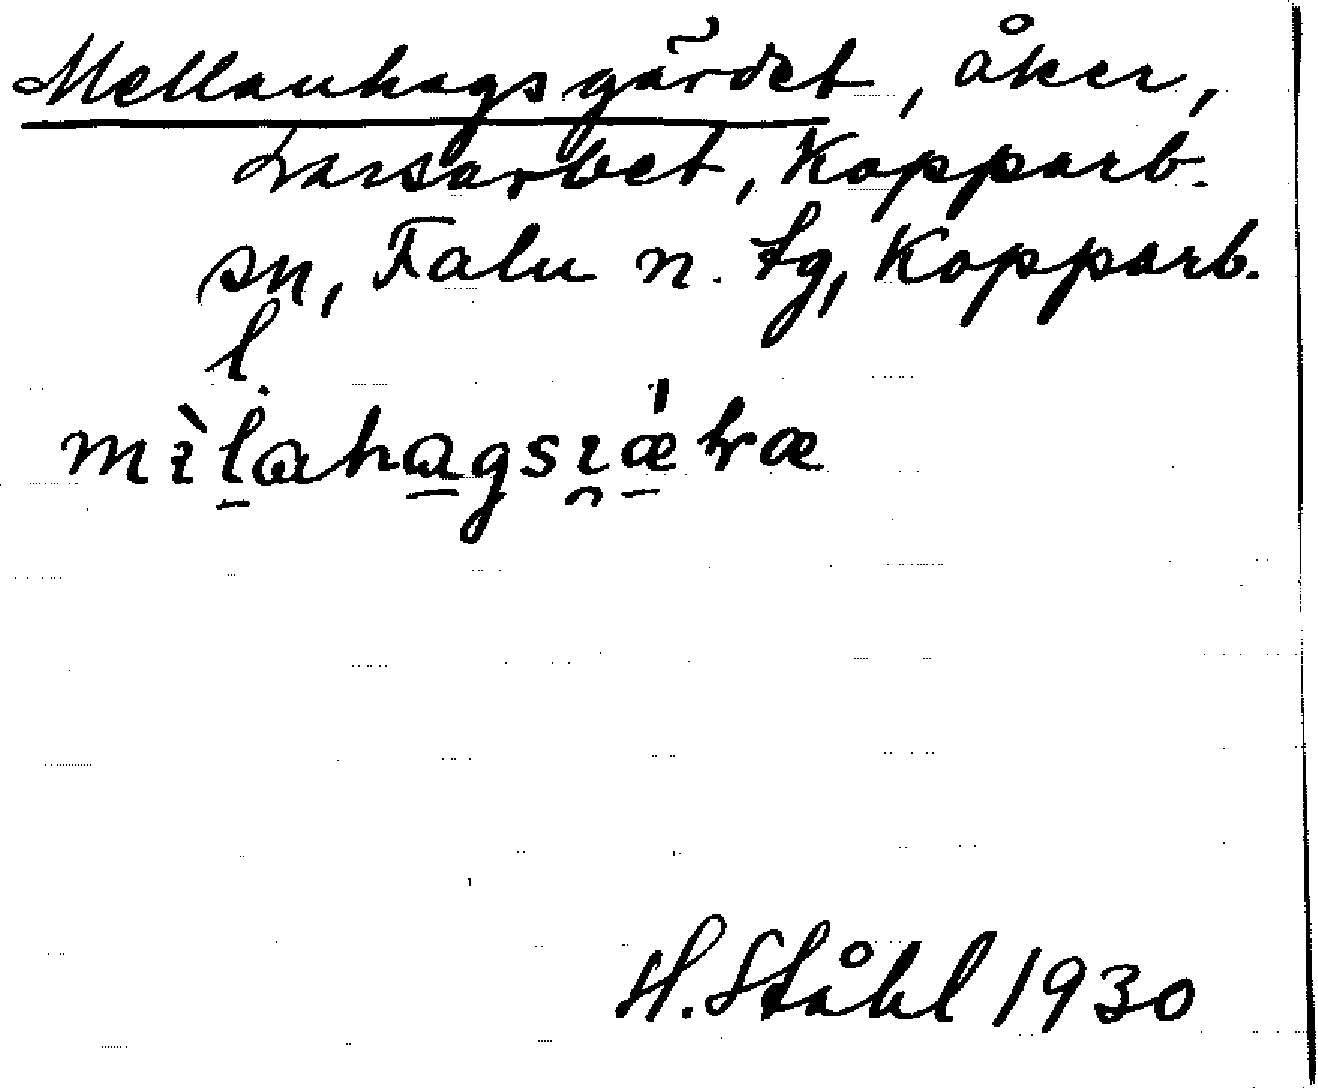 Mellanhagsgärdet, åker,
Larsarbet, Kopparb.
sn, Falu n. tg, Kopparb.
l.
H. Ståhl 1930